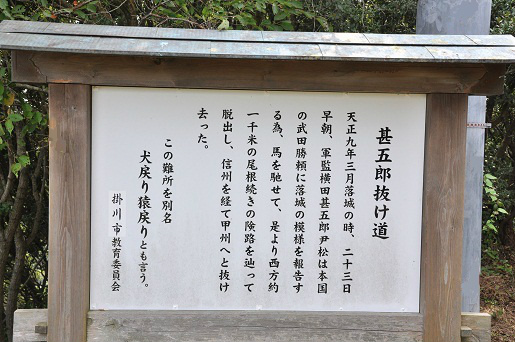 甚五郎抜け道
天正九年三月落城の時、二十三日
早朝、軍監横田甚五郎尹松は本国
の武田勝頼に落城の模様を報告す
る為、馬を馳せて、是より西方約
一千米の尾根続きの険路を辿って
脱出し、信州を経て甲州へと抜け
去った。
この難所を別名
犬戻り猿戻りとも言う。
掛川市教育委員会